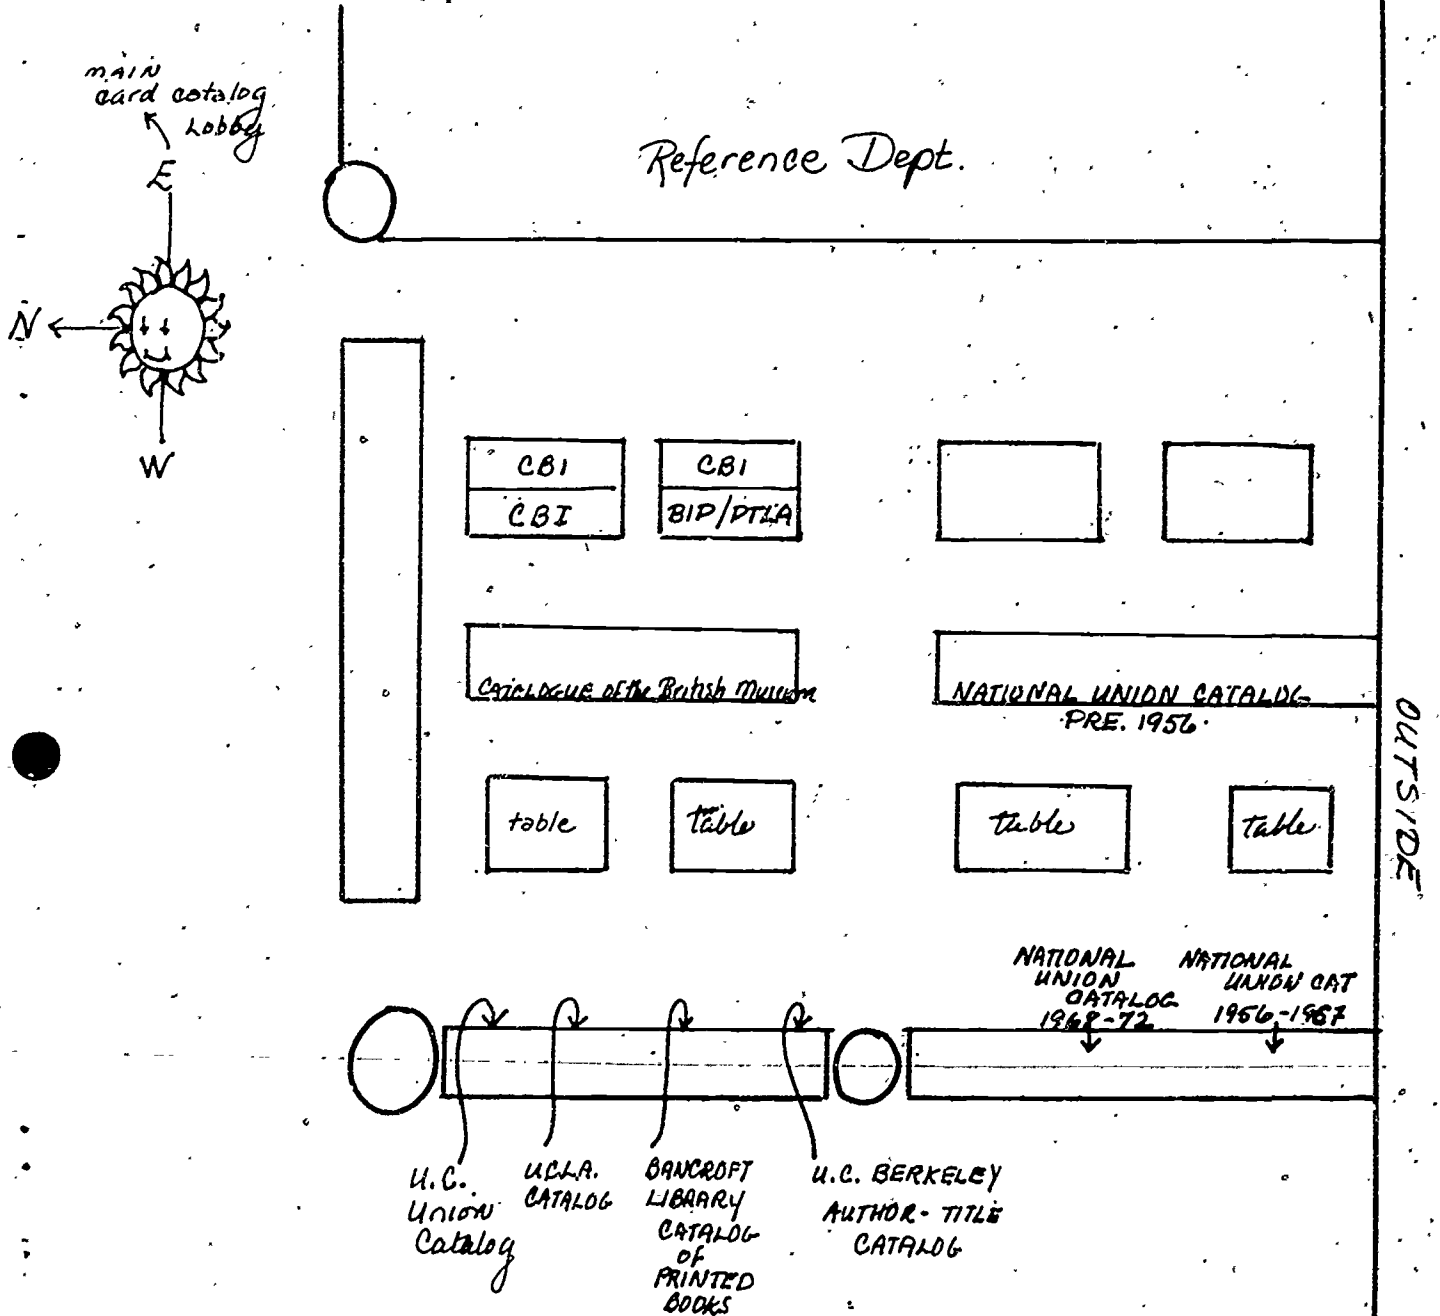 MAIN
card catalog
Lobby
E
N
W
Reference Dept.
CBI
CBI
CBI
BIP/PTLA
Catalogue of the British Museum
NATIONAL UNION CATALOG
PRE. 1956.
OUTSIDE
table
table
table
table
NATIONAL
UNION
CATALOG
1968-72
NATIONAL
UNION CAT
1956-1967
U.C.
Union
Catalog
UCLA.
CATALOG
BANCROFT
LIBRARY
CATALOG
OF
PRINTED
BOOKS
U.C. BERKELEY
AUTHOR-TITLE
CATALOG